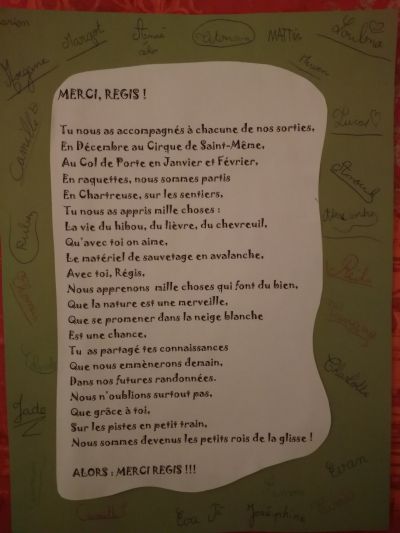 Margot
MATTIS
Morgane
Camille
Lucas
MERCI, REGIS !
Tu nous as accompagnés à chacune de nos sorties,
En Décembre au Cirque de Saint-Même,
Au Col de Porte en Janvier et Février,
En raquettes, nous sommes partis
En Chartreuse, sur les sentiers,
Tu nous as appris mille choses :
La vie du hibou, du lièvre, du chevreuil,
Qu'avec toi on aime,
Le matériel de sauvetage en avalanche,
Avec toi, Régis,
Nous apprenons mille choses qui font du bien,
Que la nature est une merveille,
Que se promener dans la neige blanche
Est une chance,
Tu as partagé tes connaissances
Que nous emmènerons demain,
Dans nos futures randonnées.
Nous n'oublions surtout pas,
Que grâce à toi,
Sur les pistes en petit train,
Nous sommes devenus les petits rois de la glisse !
ALORS : MERCI REGIS !!!
Jade
Charlotte
Ewan
Camille
Eva
Joséphine